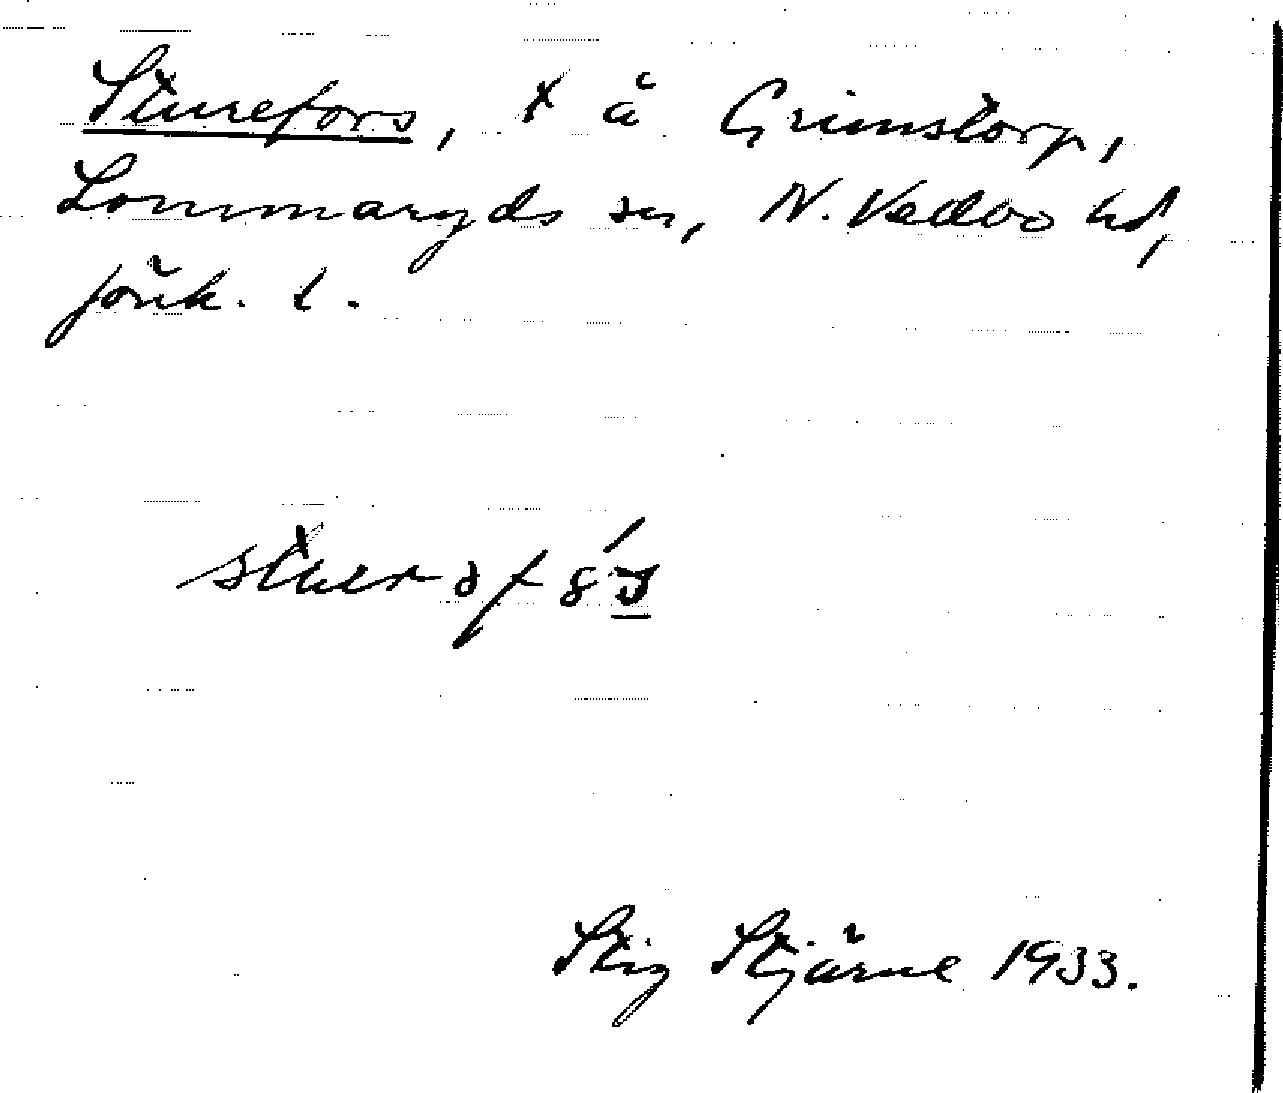 Sturefors, x å Grimstorp,
Lommaryds sn, N. Vedbo hd,
Jönk. l.
Stig Stjärne 1933.